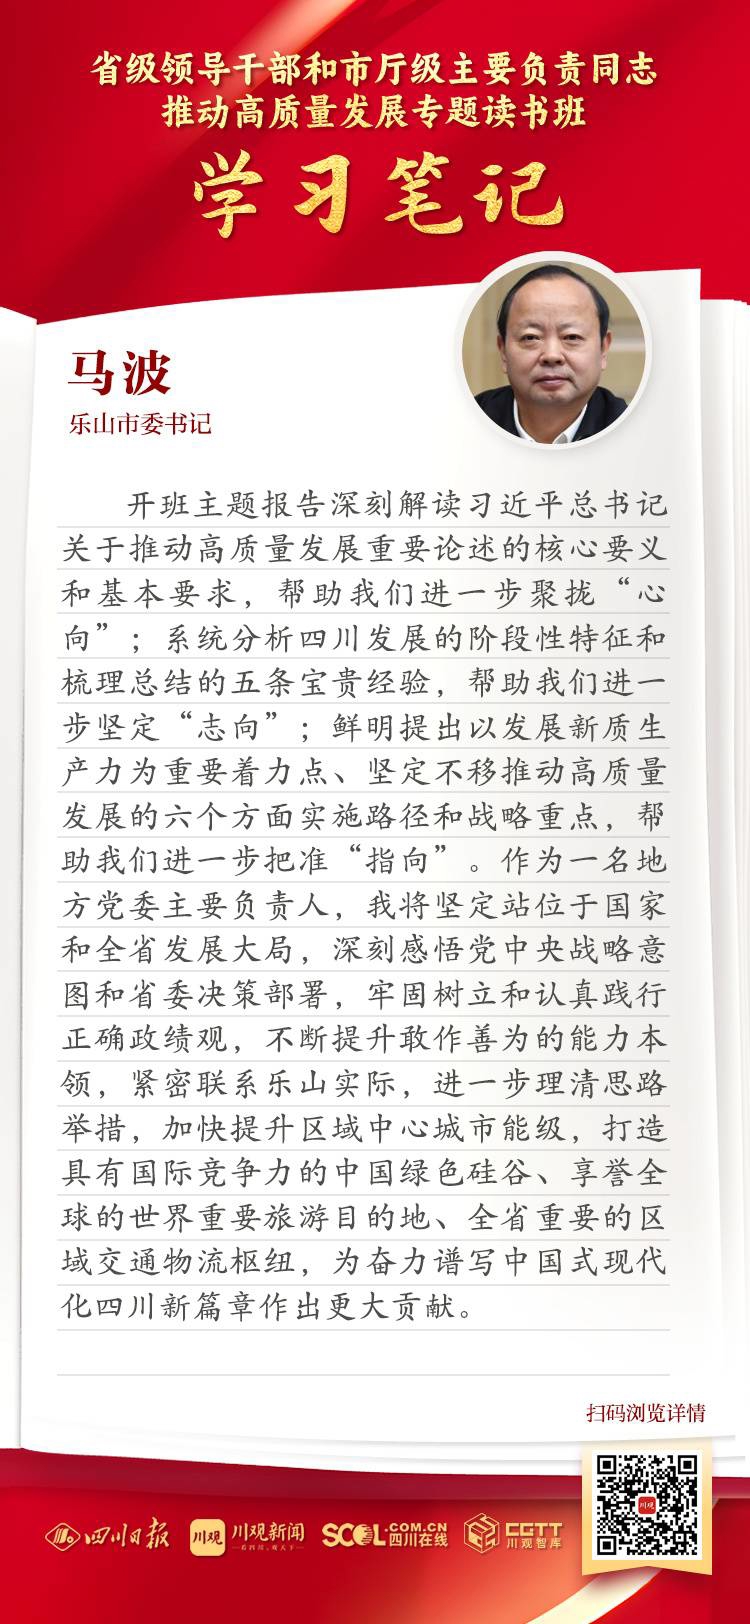 省级领导干部和市厅级主要负责同志
推动高质量发展专题读书班
学习笔记
马波
乐山市委书记
开班主题报告深刻解读习近平总书记
关于推动高质量发展重要论述的核心要义
和基本要求，帮助我们进一步聚拢“心
向”；系统分析四川发展的阶段性特征和
梳理总结的五条宝贵经验，帮助我们进一
步坚定“志向”；鲜明提出以发展新质生
产力为重要着力点、坚定不移推动高质量
发展的六个方面实施路径和战略重点，帮
助我们进一步把准“指向”。作为一名地
方党委主要负责人，我将坚定站位于国家
和全省发展大局，深刻感悟党中央战略意
图和省委决策部署，牢固树立和认真践行
正确政绩观，不断提升敢作善为的能力本
领，紧密联系乐山实际，进一步理清思路
举措，加快提升区域中心城市能级，打造
具有国际竞争力的中国绿色硅谷、享誉全
球的世界重要旅游目的地、全省重要的区
域交通物流枢纽，为奋力谱写中国式现代
化四川新篇章作出更大贡献。
扫码浏览详情
川观
四川日报
川观
川观新闻
看四川，观天下
SCOL.COM.CN
四川在线
CGTT
川观智库